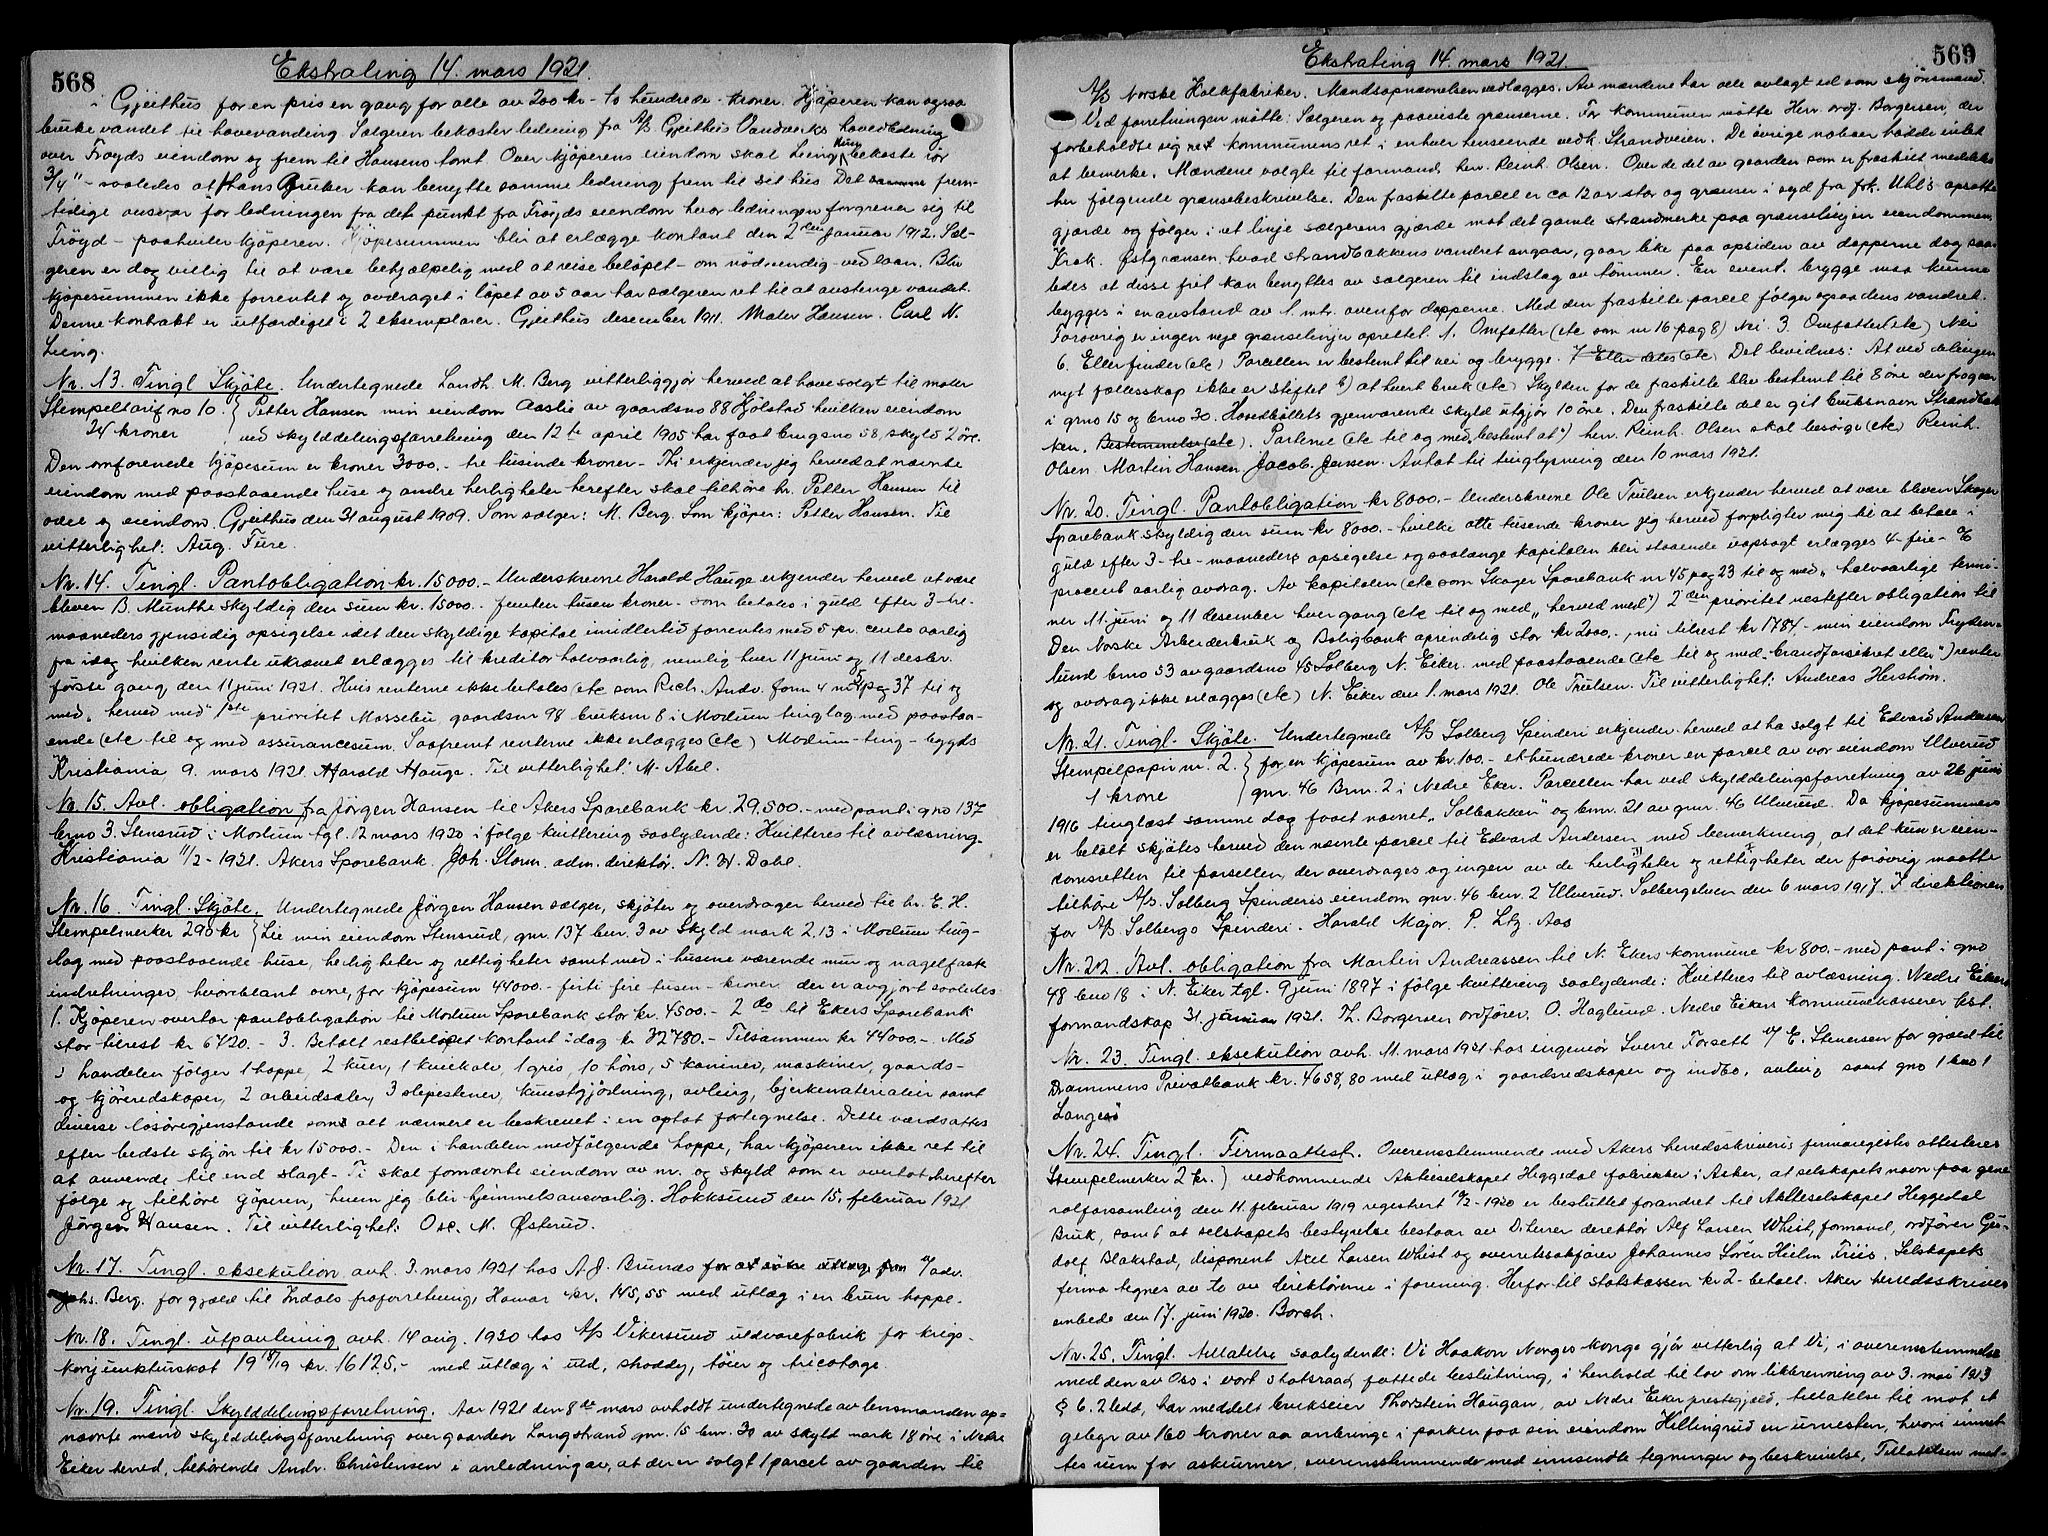 568
Ekstrating 14. mars 1921.
i Gjeithus for en pris en gang for alle av 200 kr – to hundrede – kroner. Kjøperen kan ogsaa
bruke vandet til havevanding. Sælgeren bekoster ledning fra A/S Gjeithus Vandverks hovedledning
over Frøyds eiendom og frem til Hansens tomt. Over kjøperens eiendom skal Lieng kun bekoste rør
3/4" – saaledes at Hans Bruker kan benytte samme ledning frem til sit hus. Det samme frem-
tidige ansvar for ledningen fra det punkt fra Frøyds eiendom hvor ledningen forgrener sig til
Frøyd – paahviler kjøperen. Kjøpesummen blir at erlægge kontant den 2den Januar 1912. Sæl-
geren er dog villig til at være behjælpelig med at reise beløpet – om nødvendig – ved laan. Blir
kjøpesummen ikke forrentet og avdraget i løpet av 5 aar har sælgeren ret til at avstenge vandet.
Denne kontrakt er utfærdiget i 2 eksemplarer. Gjeithus desember 1911. Mater Hansen. Carl N.
Lieng.
Nr. 13. Tingl. Skjøte. Undertegnede Landh. M. Berg vitterliggjør herved at have solgt til maler
Stempeltarif no 10. { Petter Hansen min eiendom Aaslie av gaardsno 88 Hjølstad hvilken eiendom
24 kroner ved skylddelingsforretning den 12te april 1905 har faat brugsno 58, skyld 2 øre.
Den omforenede kjøpesum er kroner 3000. – tre tusinde kroner – Thi erkjender jeg herved at nævnte
eiendom med paastaaende huse og andre herligheter herefter skal tilhøre hr. Petter Hansen til
odel og eiendom. Gjeithus den 31 august 1909. Som sælger: M. Berg. Som kjøper: Petter Hansen. Til
vitterlighet: Aug. Ture.
Nr. 14. Tingl. Pantobligation kr. 15000. – Underskrevne Harald Hauge erkjender herved at være
bleven B. Munthe skyldig den sum kr. 15000. – femten tusen kroner – som betales i guld efter 3 – tre –
maaneders gjensidig opsigelse idet den skyldige kapital imidlertid forrentes med 5 pr. cento aarlig
fra idag hvilken rente ukrævet erlægges til kreditor halvaarlig, nemlig hver 11 juni og 11 desbr.
første gang den 11 juni 1921. Hvis renterne ikke betales (etc som Rich. Andv. form 4 nr 2 pag 37 til og
med „ herved med" 1ste prioritet Mosselien gaardsnr 98 bruksnr 8 i Modum tinglag med paastaa-
ende (etc til og med assurancesum. Saafremt renterne ikke erlægges (etc) Modum – ting – bygds
Kristiania 9. mars 1921. Harald Hauge. Til vitterlighet: M. Abel.
Nr. 15. Avl. obligation fra Jørgen Hansen til Akers Sparebank kr 29.500. – med pant i gno 137
brno 3. Stensrud i Modum tgl. 12 mars 1920 i følge kvittering saalydende: Kvitteres til avlæsning.
Kristiania 11/2 – 1921. Akers Sparebank. Joh. Storm. adm. direktør. N. H. Dahl.
Nr. 16. Tingl. Skjøte. Undertegnede Jørgen Hansen sælger, skjøter og overdrager herved til hr. E. H.
Stempelmerker 290 kr { Lie min eiendom Stensrud, gnr. 137 bnr. 3 av Skyld mark 2.13 i Modum ting-
lag med paastaaende huse, herligheter og rettigheter samt med i husene værende mur og nagelfaste
indretninger, hvoreblant ovne, for kjøpesum 44000. – firti fire tusen – kroner, der er avgjort saaledes
1. Kjøperen overtar pantobligation til Modum Sparebank stor kr. 4500. – 2 do til Ekers Sparebank
stor tilrest kr 6720. – 3. Betalt restbeløpet kontant idag kr 32780. – Tilsammen kr 44000. – Med
i handelen følger 1 hoppe, 2 kuer, 1 kviekalv, 1 gris, 10 høns, 5 kaniner, maskiner, gaards-
og kjøreredskaper, 2 arbeidssæler, 3 slepestener, kunstgjødning, avling, bjerkematerialer samt
diverse løsøregjenstande som alt nærmere er beskrevet i en optat fortegnelse. Dette værdsattes
efter bedste skjøn til kr 15000. – Den i handelen medfølgende hoppe, har kjøperen ikke ret til
at anvende til end slagt. – Ti skal fornævnte eiendom av nr. og skyld som er overtat herefter
følge og tilhøre kjøperen, hvem jeg blir hjemmelsansvarlig. Hokksund den 15. februar 1921
Jørgen Hansen. Til vitterlighet: Osc. M. Østerud.
Nr. 17. Tingl. eksekution avh. 3. mars 1921 hos A. J. Brunes for at søke utlæg for v/ adv.
Johs. Berg. for gjæld til Indals fraforretning, Hamar kr. 145,55 med utlæg i en brun hoppe.
Nr. 18. Tingl. utpantning avh. 14 aug. 1920 hos A/S Vikersund uldvarefabrik for krigs-
konjunkturskat 1918/19 kr. 16125. – med utlæg i uld, shoddy, tøier og tricotage.
Nr. 19. Tingl. Skylddelingsforretning. Aar 1921 den 8de mars avholdt undertegnede av lensmanden op-
nævnte mænd skylddelingsforretning over gaarden Langstrand gnr. 15 bnr. 30 av skyld mark 18 øre i Nedre
Eiker herred, tilhørende Andr. Christensen i anledning av, at der er solgt 1 parcel av gaarden til
569
Ekstrating 14. mars 1921.
A/S Norske Halkfabriker. Mandsopnævnelsen vedlægges. Av mændene har alle avlagt ed som skjønsmænd.
Ved forretningen møtte: Sælgeren og paaviste grænserne. For kommunen møtte Herr ordf. Borgersen, der
forbeholdte sig ret kommunens ret i enhver henseende vedk. Strandveien. De øvrige naboer hadde intet
at bemerke. Mændene valgte til formand, herr. Reinh. Olsen. Over de del av gaarden som er fraskilt meddeles
her følgende grænsebeskrivelse. Den fraskilte parcel er ca 12 ar stor og grænser i syd fra frk. Uhl's opsatte
gjærde og følger i ret linje sælgerens gjærde mot det gamle strandmerke paa grænselinjen eiendommen
Krok. Østgrænsen hvad strandbakkens vandret angaar, gaar like paa opsiden av dopperne dog saa-
ledes at disse frit kan benyttes av sælgeren til indslag av tømmer. En event. brygge maa kunne
bygges i en avstand av 1. mtr. ovenfor dopperne. Med den fraskilte parcel følger ogsaa dens vandret.
Forøvrig er ingen nye grænselinjer oprettet. 1. Omfatter (etc som nr 16 pag 8) Nei. 3. Omfatter (etc) Nei
6. Eller finder (etc) Parcellen er bestemt til vei og brygge. 7 Eller deles (etc) Det bevidnes: At ved delingen
nyt fællesskap ikke er stiftet b) at hvert bruk (etc) Skylden for de fraskilte blev bestemt til 8 øre der fragaar
i gnr 15 og brno 30. Hovedbølets gjenværende skyld utgjør 10 øre. Den fraskilte del er git bruksnavn Strandbak-
ken. Bestemmelse (etc). Parterne (etc til og med bestemt at") herr. Reinh. Olsen skal besørge (etc) Reinh.
Olsen. Martin Hansen. Jacob. Jensen. Avtat til tinglysning den 10 mars 1921.
Nr. 20. Tingl. Pantobligation kr 8000. – Underskrevne Ole Trulsen erkjender herved at være bleven Skoger
Sparebank skyldig den sum kr 8000. – hvilke otte tusende kroner jeg herved forpligter mig til at betale i
guld efter 3 – tre – maaneders opsigelse og saalænge kapitalen blir staaende uopsagt erlægges 4 – fire – %
procent aarlig avdrag. Av kapitalen (etc som Skoger Sparebank nr 45 pag 23 til og med „ halvaarlige termi-
ner 11 juni og 11 desember hver gang (etc til og med „ herved med") 2den prioritet næstefter obligation til
Den Norske Arbeiderbruk og Boligbank oprindelig stor kr 2000. –, nu tilrest kr 1784. – min eiendom Fryden-
lund brno 53 av gaardsno 45 Solberg N. Eiker. med paastaaende (etc til og med „ brandforsikret eller") renter
og avdrag ikke erlægges (etc) N. Eiker den 1. mars 1921. Ole Trulsen. Til vitterlighet: Andreas Herstrøm.
Nr. 21. Tingl. Skjøte. Undertegnede A/S Solberg Spinderi erkjender herved at ha solgt til Edvard Andersen
Stempelpapir nr. 2. { for en kjøpesum av kr. 100. – ethundrede kroner en parcel av vor eiendom Ulverud
1 krone gnr. 46 Brnr. 2 i Nedre Eker. Parcellen har ved skylddelingsforretning av 26 juni
1916 tinglæst samme dag faaet navnet „ Solbakken" og bnr. 21 av gnr. 46 Ulverud. Da kjøpesummen
er betalt skjøtes herved den nævnte parcel til Edvard Andersen, med bemerkning, at det kun er eien-
domsretten til parsellen, der overdrages og ingen av de herligheter og rettigheter der forøvrig maatte
tilhøre A/S. Solberg Spinderis eiendom gnr. 46 bnr. 2 Ulverud. Solbergelven den 6 mars 1917. I direktionen
for A/S Solbergs Spinderi. Harald Major. P. Ltz. Aas
Nr. 22. Avl. obligation fra Martin Andreassen til N. Ekers kommune kr 800. – med pant i gno
48 bno 18 i N. Eiker tgl. 9 juni 1897 i følge kvittering saalydende: Kvitteres til avlæsning. Nedre Eikers
formandskap 31. januar 1921. Th. Borgersen ordfører. O. Haglund. Nedre Eikers kommunekasserer bst.
Nr. 23. Tingl. eksekution avh. 11. mars 1921 hos ingeniør Sverre Forsett v/ E. Stenersen for gjæld til
Drammens Privatbank kr. 4658,80 med utlæg i gaardsredskaper og indbo, avling samt gno 1 bno 1
Langesø
Nr. 24. Tingl. Firmaattest. Overensstemmende med Akers herredsskriveris firmaregister attesteres
Stempelmerker 2 kr. } vedkommende Aktieselskapet Heggedal fabrikker i Asker, at selskapets navn paa gene-
ralforsamling den 11. februar 1919 registrert 10/2 – 1920 er besluttet forandret til Aktieselskapet Heggedal
Bruk, samt at selskapets bestyrelse bestaar av D'Herrer direktør Alf Larsen Whist, formand, ordfører Gu-
dolf Blakstad, disponent Axel Larsen Whist og overretssakfører Johannes Søren Hielm Friis. Selskapets
firma tegnes av to av direktørerne i forening. Herfor til statskassen kr 2 – betalt. Aker herredsskriver-
embede den 17. juni 1920. Borch.
Nr. 25. Tingl. tillatelse saalydende: Vi Haakon Norges konge gjør vitterlig at Vi, i overensstemmelse
med den av Oss i vort Statsraad fattede beslutning, i henhold til lov om likbrænning av 3. mai 1913
§ 6. 2 ledd, har meddelt brukseier Thorstein Haugan, av Nedre Eiker prestegjeld, tillatelse til mot et
gebyr av 160 kroner aa anbringe i parken paa sin eiendom Hellingrud en urnesten, hvori innset-
tes rum for askeurner, overensstemmende med innsendte tegninger og beskrivelse. Tillatelsen med-